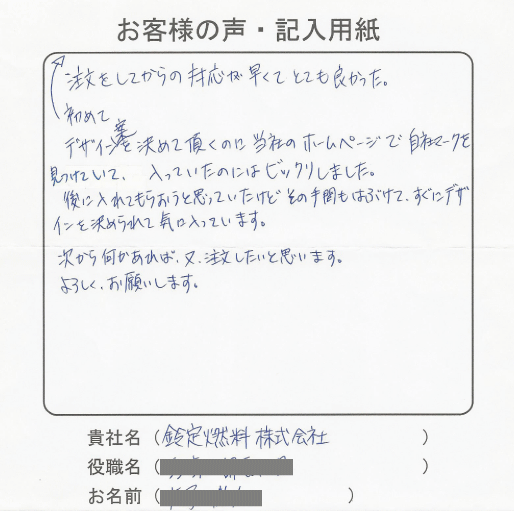 お客様の声・記入用紙
注文をしてからの対応が早くてとても良かった。
初めて
デザイン案を決めて頂くのに当社のホームページで自社マークを
見つけていて、入っていたのにはビックリしました。
後に入れてもらおうと思っていたけどその手間もはぶけて、すぐにデザ
インを決められて気に入っています。
次から何かあれば、又、注文したいと思います。
よろしく、お願いします。
貴社名（鈴定燃料株式会社）
役職名（）
お名前（）